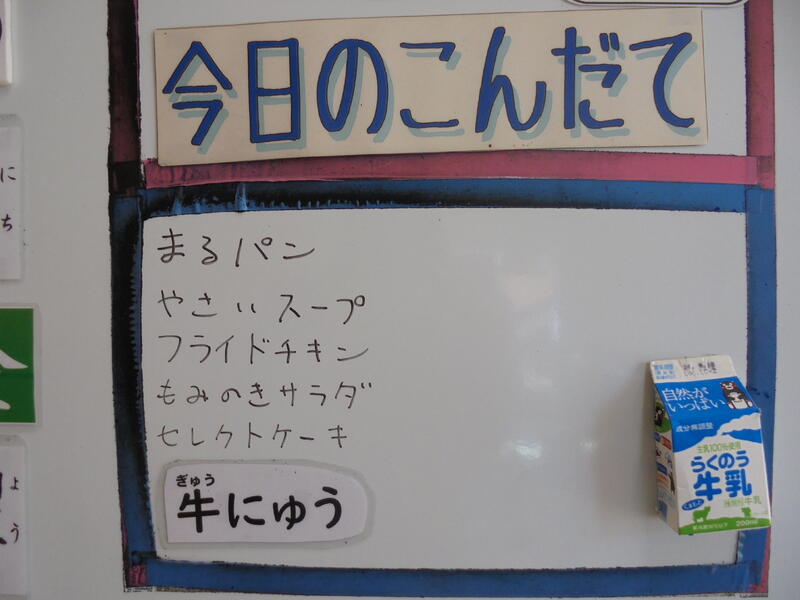 今日のこんだて
まるパン
やさいスープ
フライドチキン
もみのきサラダ
セレクトケーキ
ぎゅう
牛にゅう
自然が
いっぱい
成分無調整
生乳100%使用
らくのう
牛乳
200ml
に
ち
よ
う